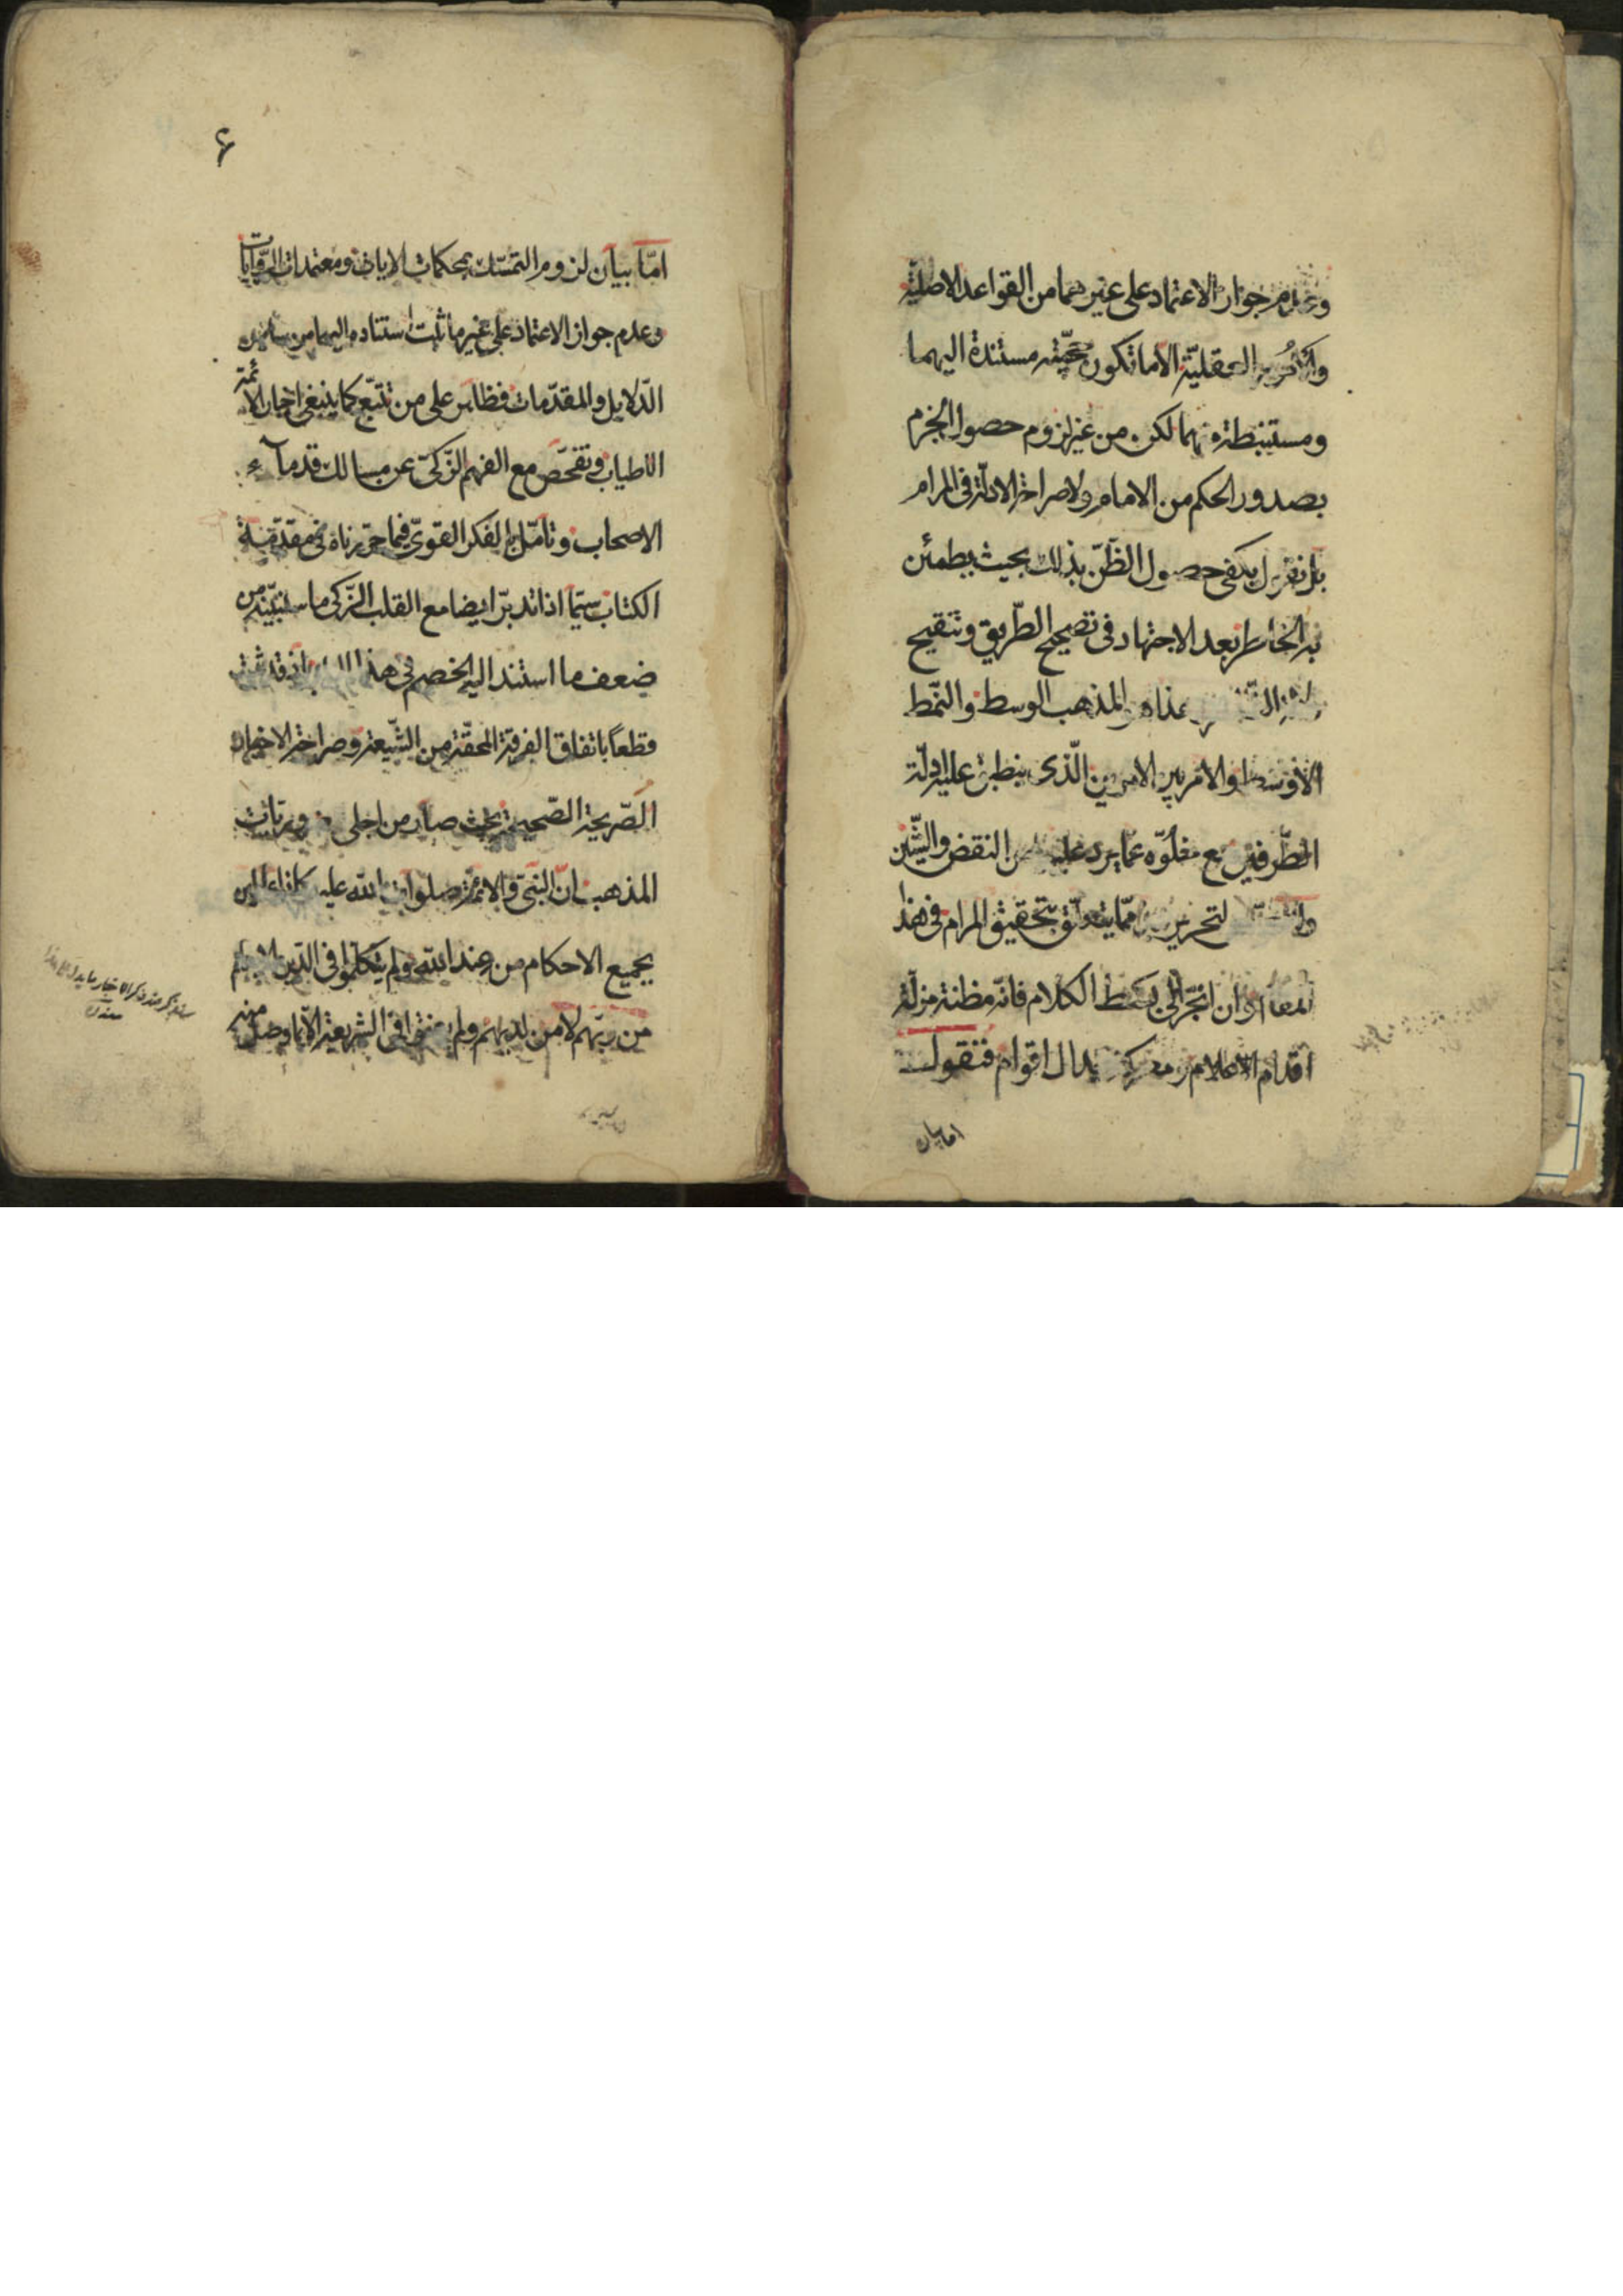 وعدم جواز الاعتماد على غيرهما من القواعد الاصليّة
العقليّة الا ما تكون حجّيّته مستندة اليهما
ومستنبطة منهما لكن من غير لزوم حصول الجزم
بصدور الحكم من الامام ولا صراحة الادلّة في المرام
بل يكفى حصول الظّنّ بذلك بحيث يطمئن
به الخاطر بعد الاجتهاد فى تصحيح الطّريق وتنقيح
هذا هو المذهب الوسط والنّمط
الاوسط والامر بين الامرين الّذى ينطبق عليه ادلّة
الطّرفين مع خلوّه عمّا يرد عليه من النقض والشّين
لتحرير ممّا يتعلّق بتحقيق المرام فى هذا
المقام وان انجرّ الى بسط الكلام فانّه مظنة مزلّة
اقدام الاعلام ومعركة جدال اقوام فنقول
اما بيان
۶
امّا بيان لزوم التمسّك بمحكمات الايات ومعتمدات الرّوايات
وعدم جواز الاعتماد على غير ما ثبت استناده اليهما من ساير
الدّلايل والمقدّمات فظاهر على من تتبّع كما ينبغى اخبار الائمّة
الاطياب وتفحّص مع الفهم الزّكىّ عن مسالك قدمآء
الاصحاب وتامّل بالفكر القوىّ فيما حرّرناه فى مقدّمة
الكتاب سيّما اذا تدبّر ايضا مع القلب الزّكى ما سنبيّنه من
ضعف ما استند اليه الخصم فى هذا الباب اذ قد ثبت
قطعاً باتفاق الفرقة المحقّة من الشّيعة وصراحة الاخبار
الصّريحة الصّحيحة بحيث صار من اجلى ضروريّات
المذهب انّ النبىّ والائمّة صلوات الله عليهم كانوا عالمين
بجميع الاحكام من عند الله ولم يتكلّموا فى الدّين الا بعلم
من ربّهم لا من لديهم ولم فى الشريعة الّا بما وصل منه
سيذكر عند ذكر الاخبار ما يدل على هذا
منه